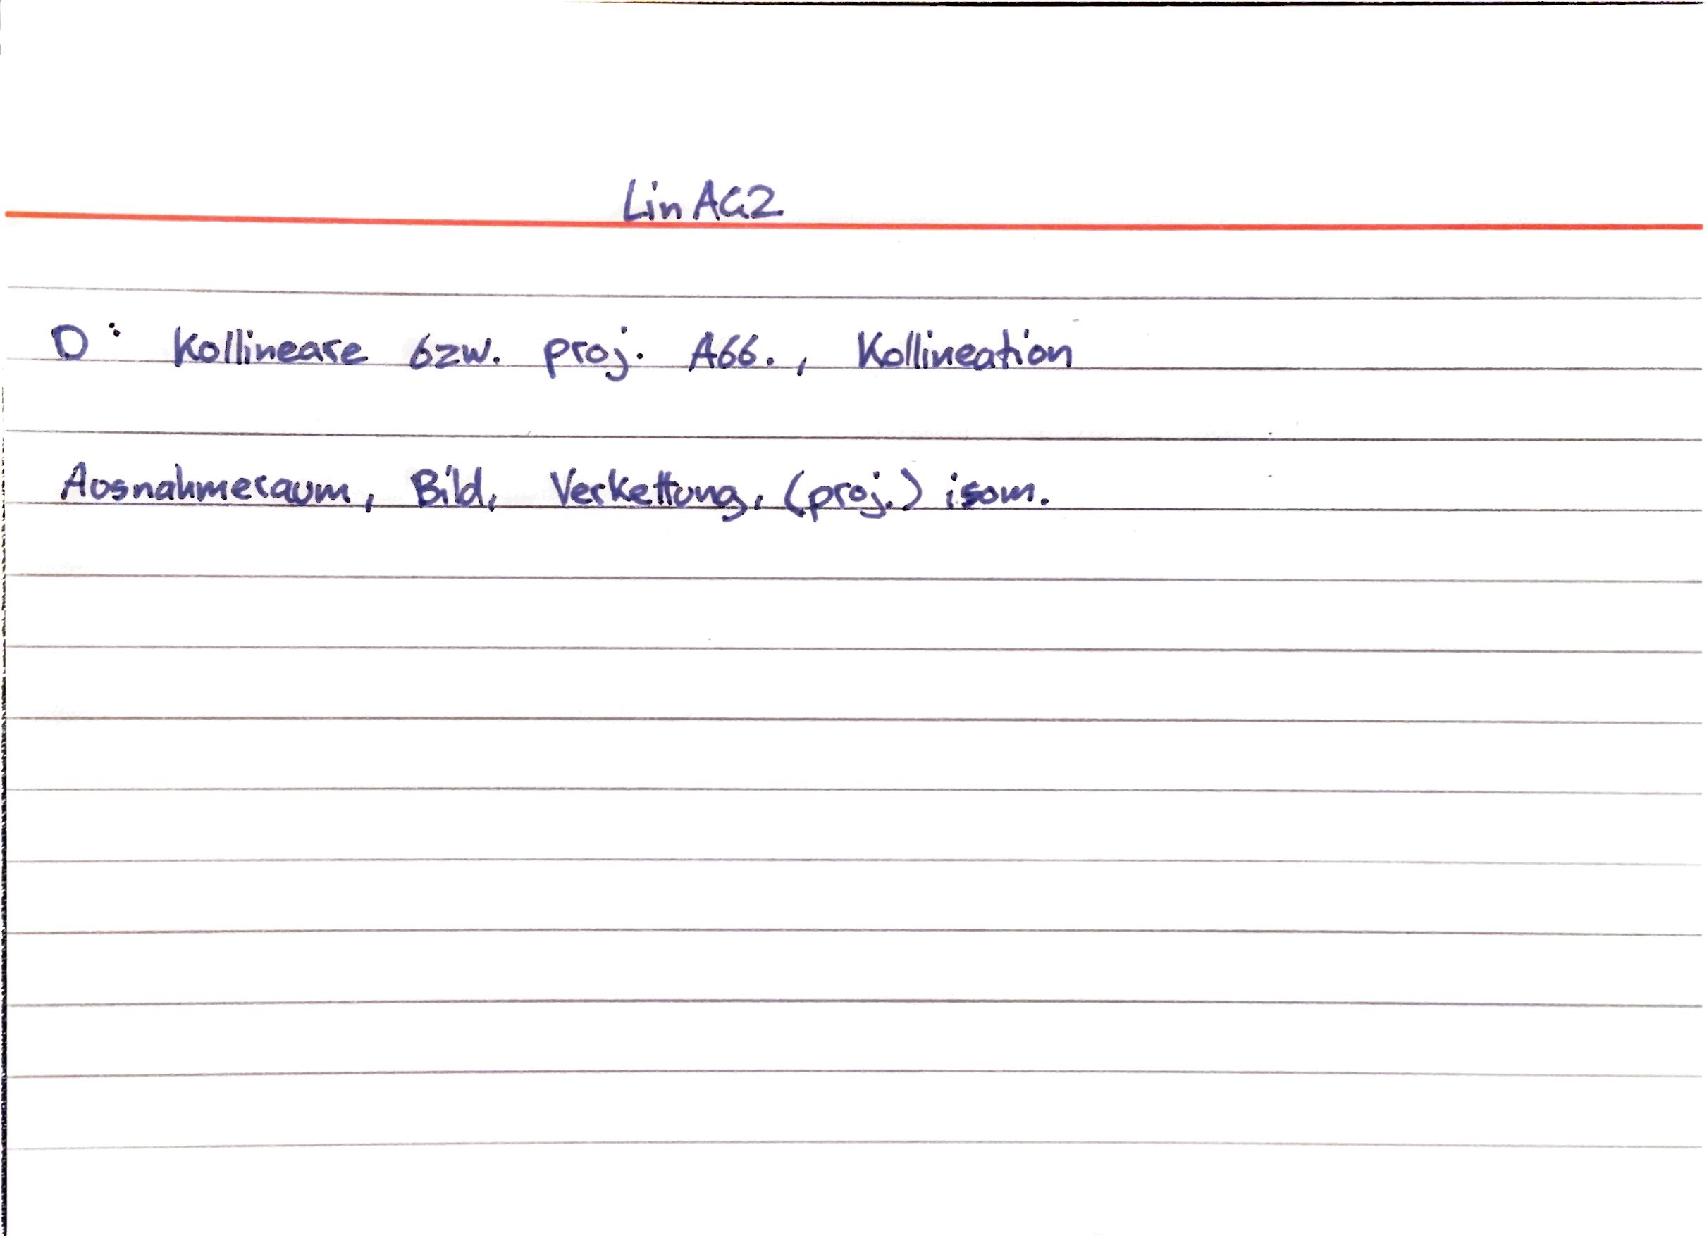 LinAG2
D: Kollineare bzw. proj. Abb., Kollineation
Ausnahmeraum, Bild, Verkettung, (proj.) isom.